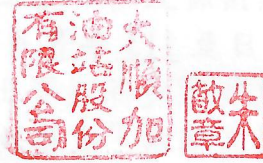 大順加
油站股份
有限公司
朱
章